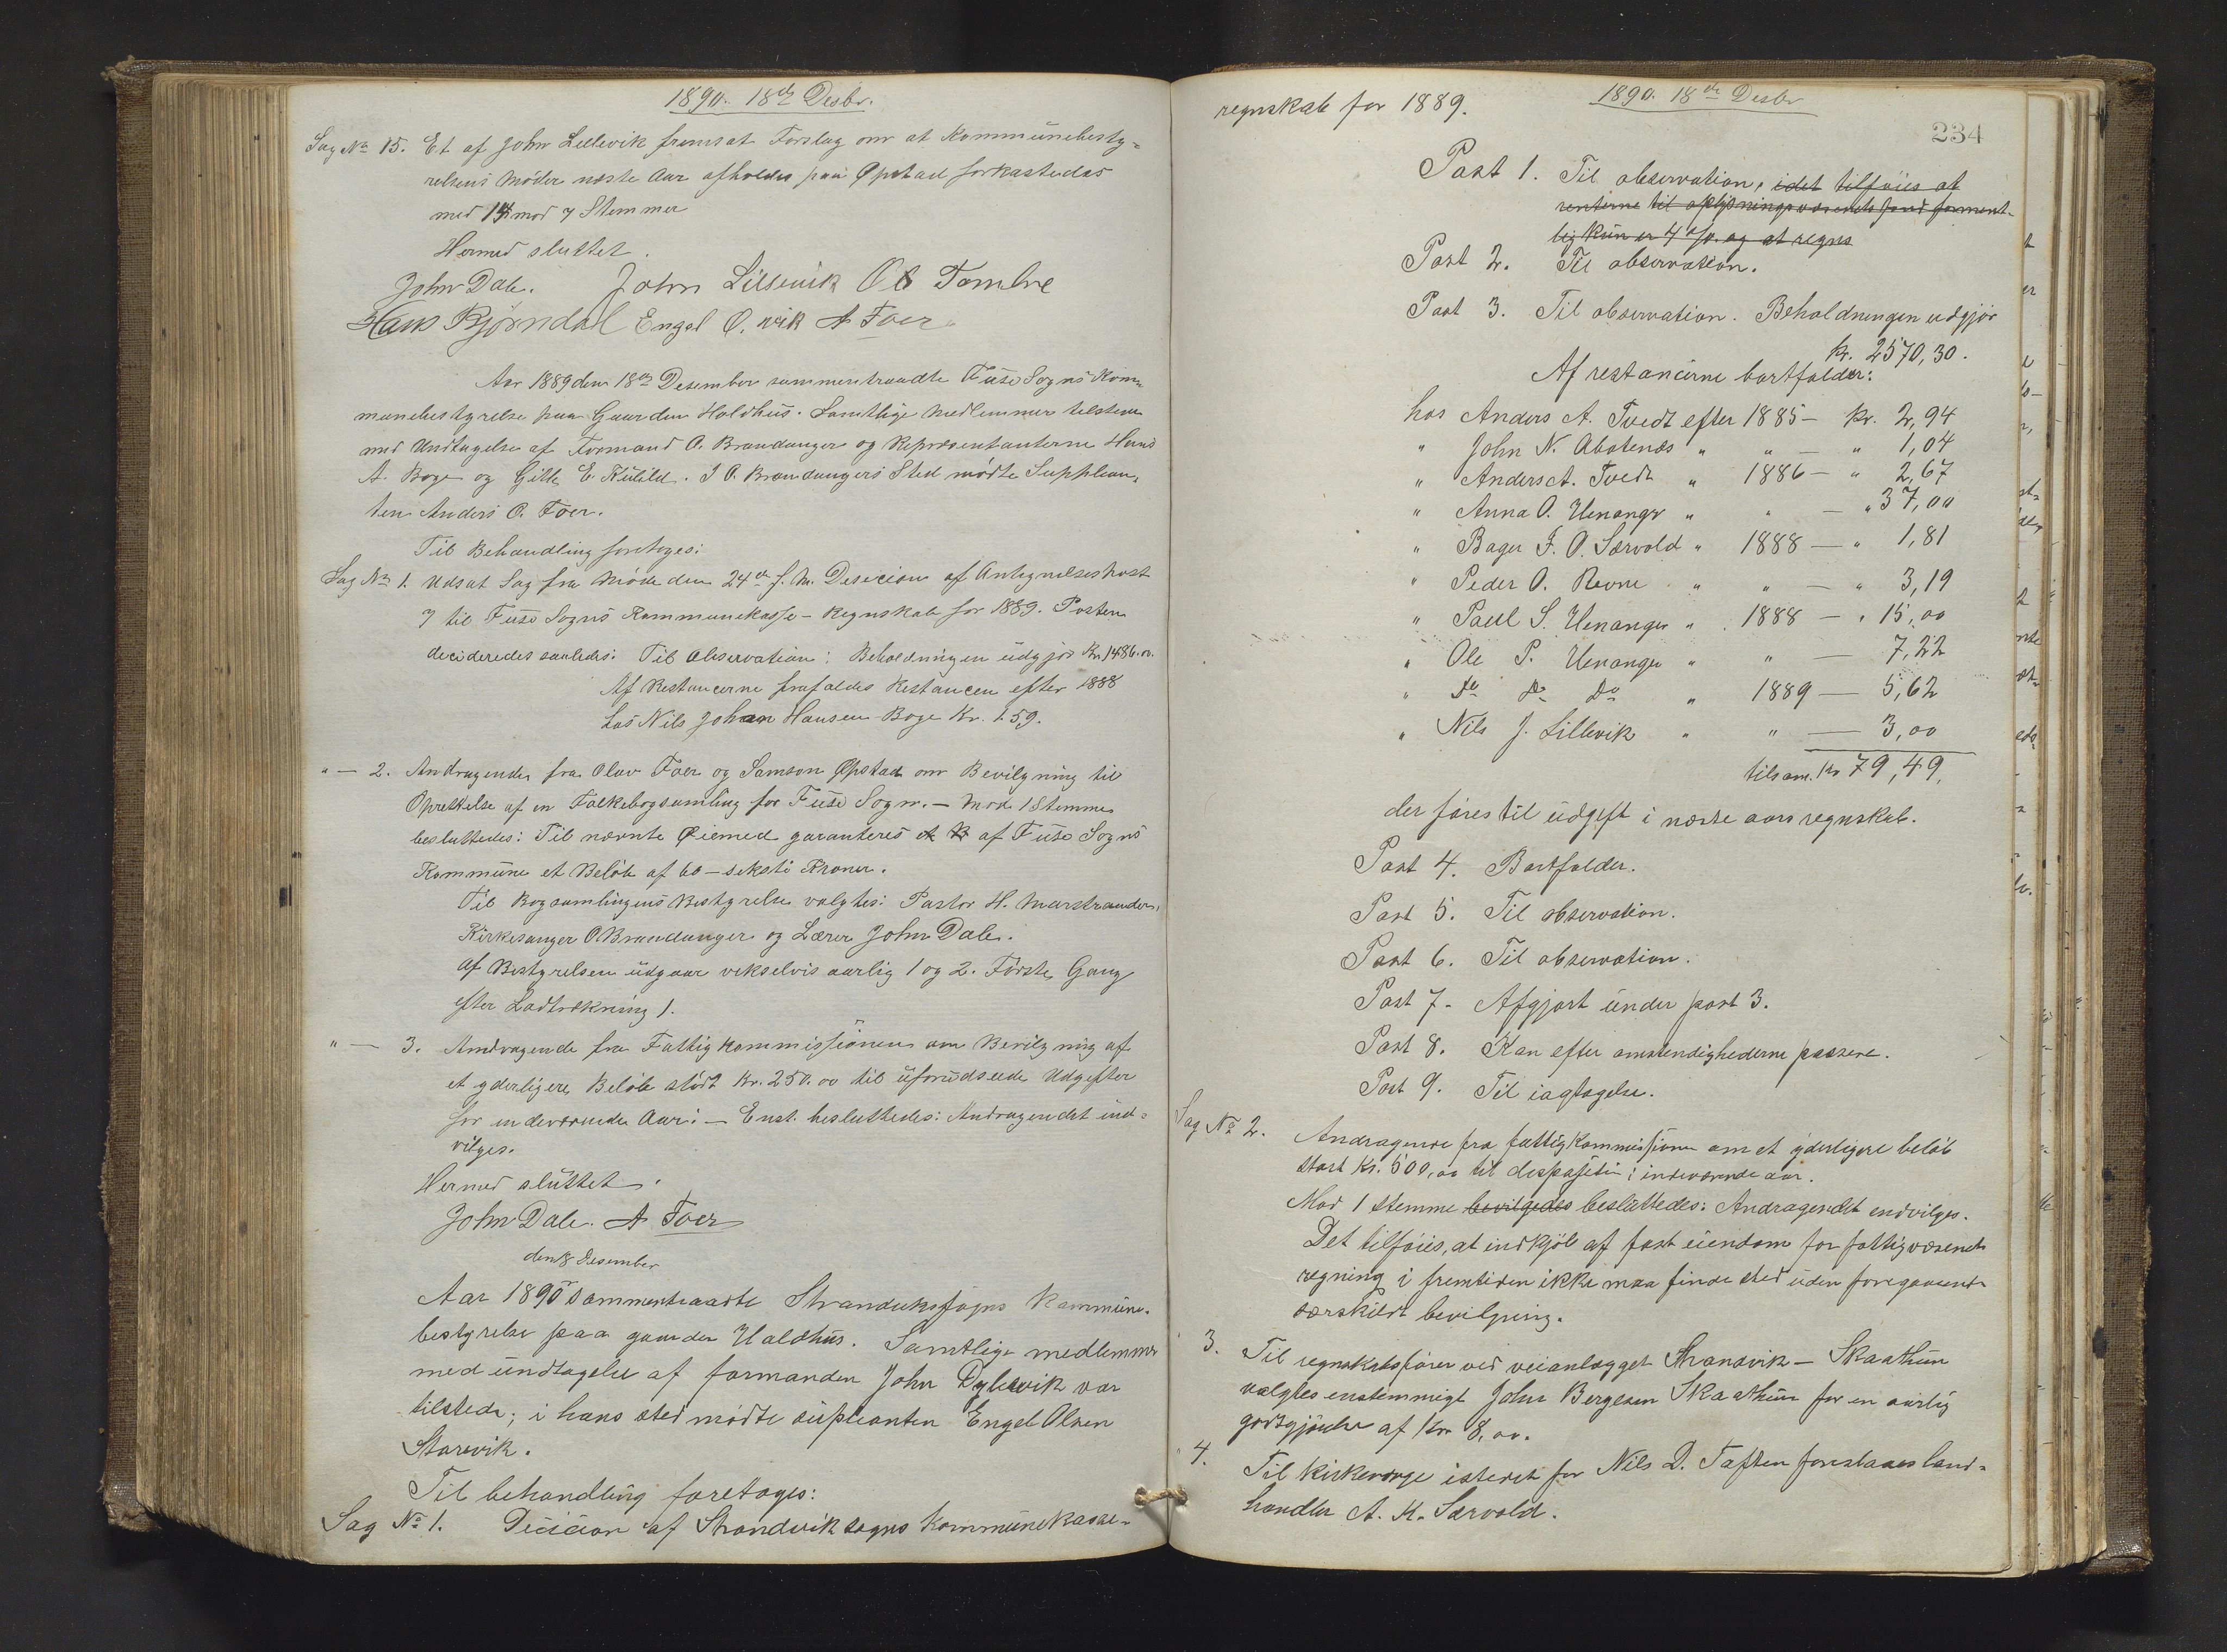 1890. 18de Desbr.
Sag No 15. Et af John Lillevik fremsat Forslag om at Kommunebesty-
relsens Møder næste Aar afholdes paa Øpstad forkastedes
med 14 mod 7 Stemmer
Hermed sluttet.
John Dale. John Lillevik O B Tombre
Hans Bjørndal Engel O. vik A Foer
Aar 1889 den 18de Desember sammentraadte Fuse Sogns Kom-
munebestyrelse paa Gaarden Holdhus. Samtlige Medlemmer tilstede
med Undtagelse af Formand O. Brandanger og Repræsentanterne Hans
A. Boge og Gitle E. Kilild. I O. Brandangers Sted mødte Supplean-
ten Anders O. Foer.
Til Behandling foretoges:
Sag No 1. Udsat Sag fra Møde den 24de f. M. Desicion af Antegnelsespost
7 til Fuse Sogns Kommunekasse-Regnskab for 1889. Posten
decideredes saaledes: Til Observation: Beholdningen udgjør Kr. 1486.00.
Af Restancerne frafaldes Restancen efter 1888
hos Nils Johan Hansen Boge Kr. 1.59.
" — 2. Andragende fra Olav Foer og Samson Øpstad om Bevilgning til
Oprettelse af en Folkebogsamling for Fuse Sogn. — Mod 1 Stemme
besluttedes: Til nævnte Øiemed garanteres et K af Fuse Sogns
Kommune et Beløb af 60 — seksti Kroner.
Til Bogsamlingens Bestyrelse valgtes: Pastor H. Marstrander,
Kirkesanger O. Brandanger og Lærer John Dale.
Af Bestyrelsen udgaar vekselvis aarlig 1 og 2. Første Gang
efter Lodtrækning 1.
" — 3. Andragende fra Fattigkommissionen om Bevilgning af
et yderligere Beløb stort Kr. 250.00 til uforudseede Udgifter
for indeværende Aar: — Enst. besluttedes: Andragendet ind-
vilges.
Hermed sluttet.
John Dale. A Foer
den 18 Desember
Aar 1890 sammentraadte Strandviks sogns Kommune-
bestyrelse paa gaarden Haldhus. Samtlige medlemmer
med undtagelse af formanden John Dylevik var
tilstede; i hans sted mødte supleanten Engel Olsen
Storevik.
Til behandling foretoges:
Sag No 1. Decision af Strandvik sogns Kommunekasse-
1890. 18de Desbr
234
regnskab for 1889.
Post 1. Til observation, idet tilføies at
renterne til oplysningsvæsenets fond forment-
lig kun er 4 0/0. og at regns
Post 2. Til observation.
Post 3. Til observation. Beholdningen udgjør
kr. 2570,30.
Af restancerne bortfalder:
hos Anders A. Tvedt efter 1885 — kr. 2,94
" John N. Abotenæs " " — " 1,04
" Anders A. Tvedt " 1886 — " 2,67
" Anna O. Henanger " " — " 37,00
" Bager F. O. Særvold " 1888 — " 1,81
" Peder O. Revne " " — " 3,19
" Paul S. Henanger " 1888 — " 15,00
" Ole P. Henanger " " — 7,22
" Do Do Do " 1889 — 5,62
" Nils J. Lillevik " " — 3,00
tilsam. Kr 79,49.
der føres til udgift i næste aars regnskab.
Post 4. Bortfalder.
Post 5. Til observation.
Post 6. Til observation.
Post 7. Afgjort under post 3.
Post 8. Kan efter omstendighederne passere.
Post 9. Til iagtagelse.
Sag No 2. Andragende fra fattigkommissionen om et yderligere beløb
stort Kr. 500,00 til disposition i indeværende aar.
Mod 1 stemme bevilgedes besluttedes: Andragendet indvilges.
Det tilføies, at indkjøb af fast eiendom for fattigvæsenets
regning i fremtiden ikke maa finde sted uden foregaaende
særskildt bevilgning.
3. Til regnskabsfører ved veianlægget Strandvik — Skaathun
valgtes enstemmigt Johs Bergesen Skaathun for en aarlig
godtgjørelse af Kr 8,00.
4. Til kirkeværge istedet for Nils D. Toften foreslaaes land-
handler A. H. Særvold.